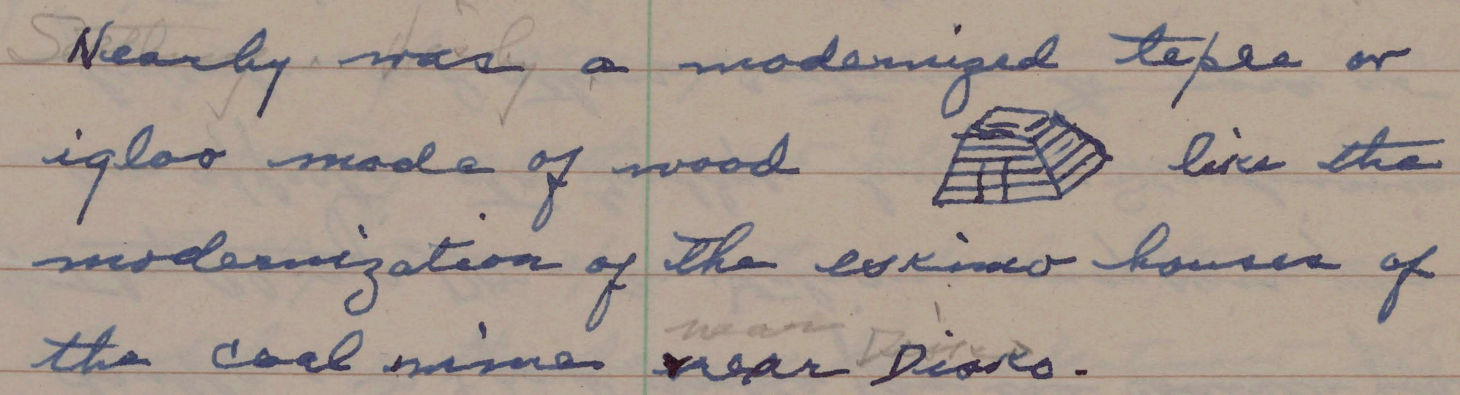 Nearby was a modernized tepee or
igloo made of wood like the
modernization of the eskimo houses of
near
the coal mine near Disko.